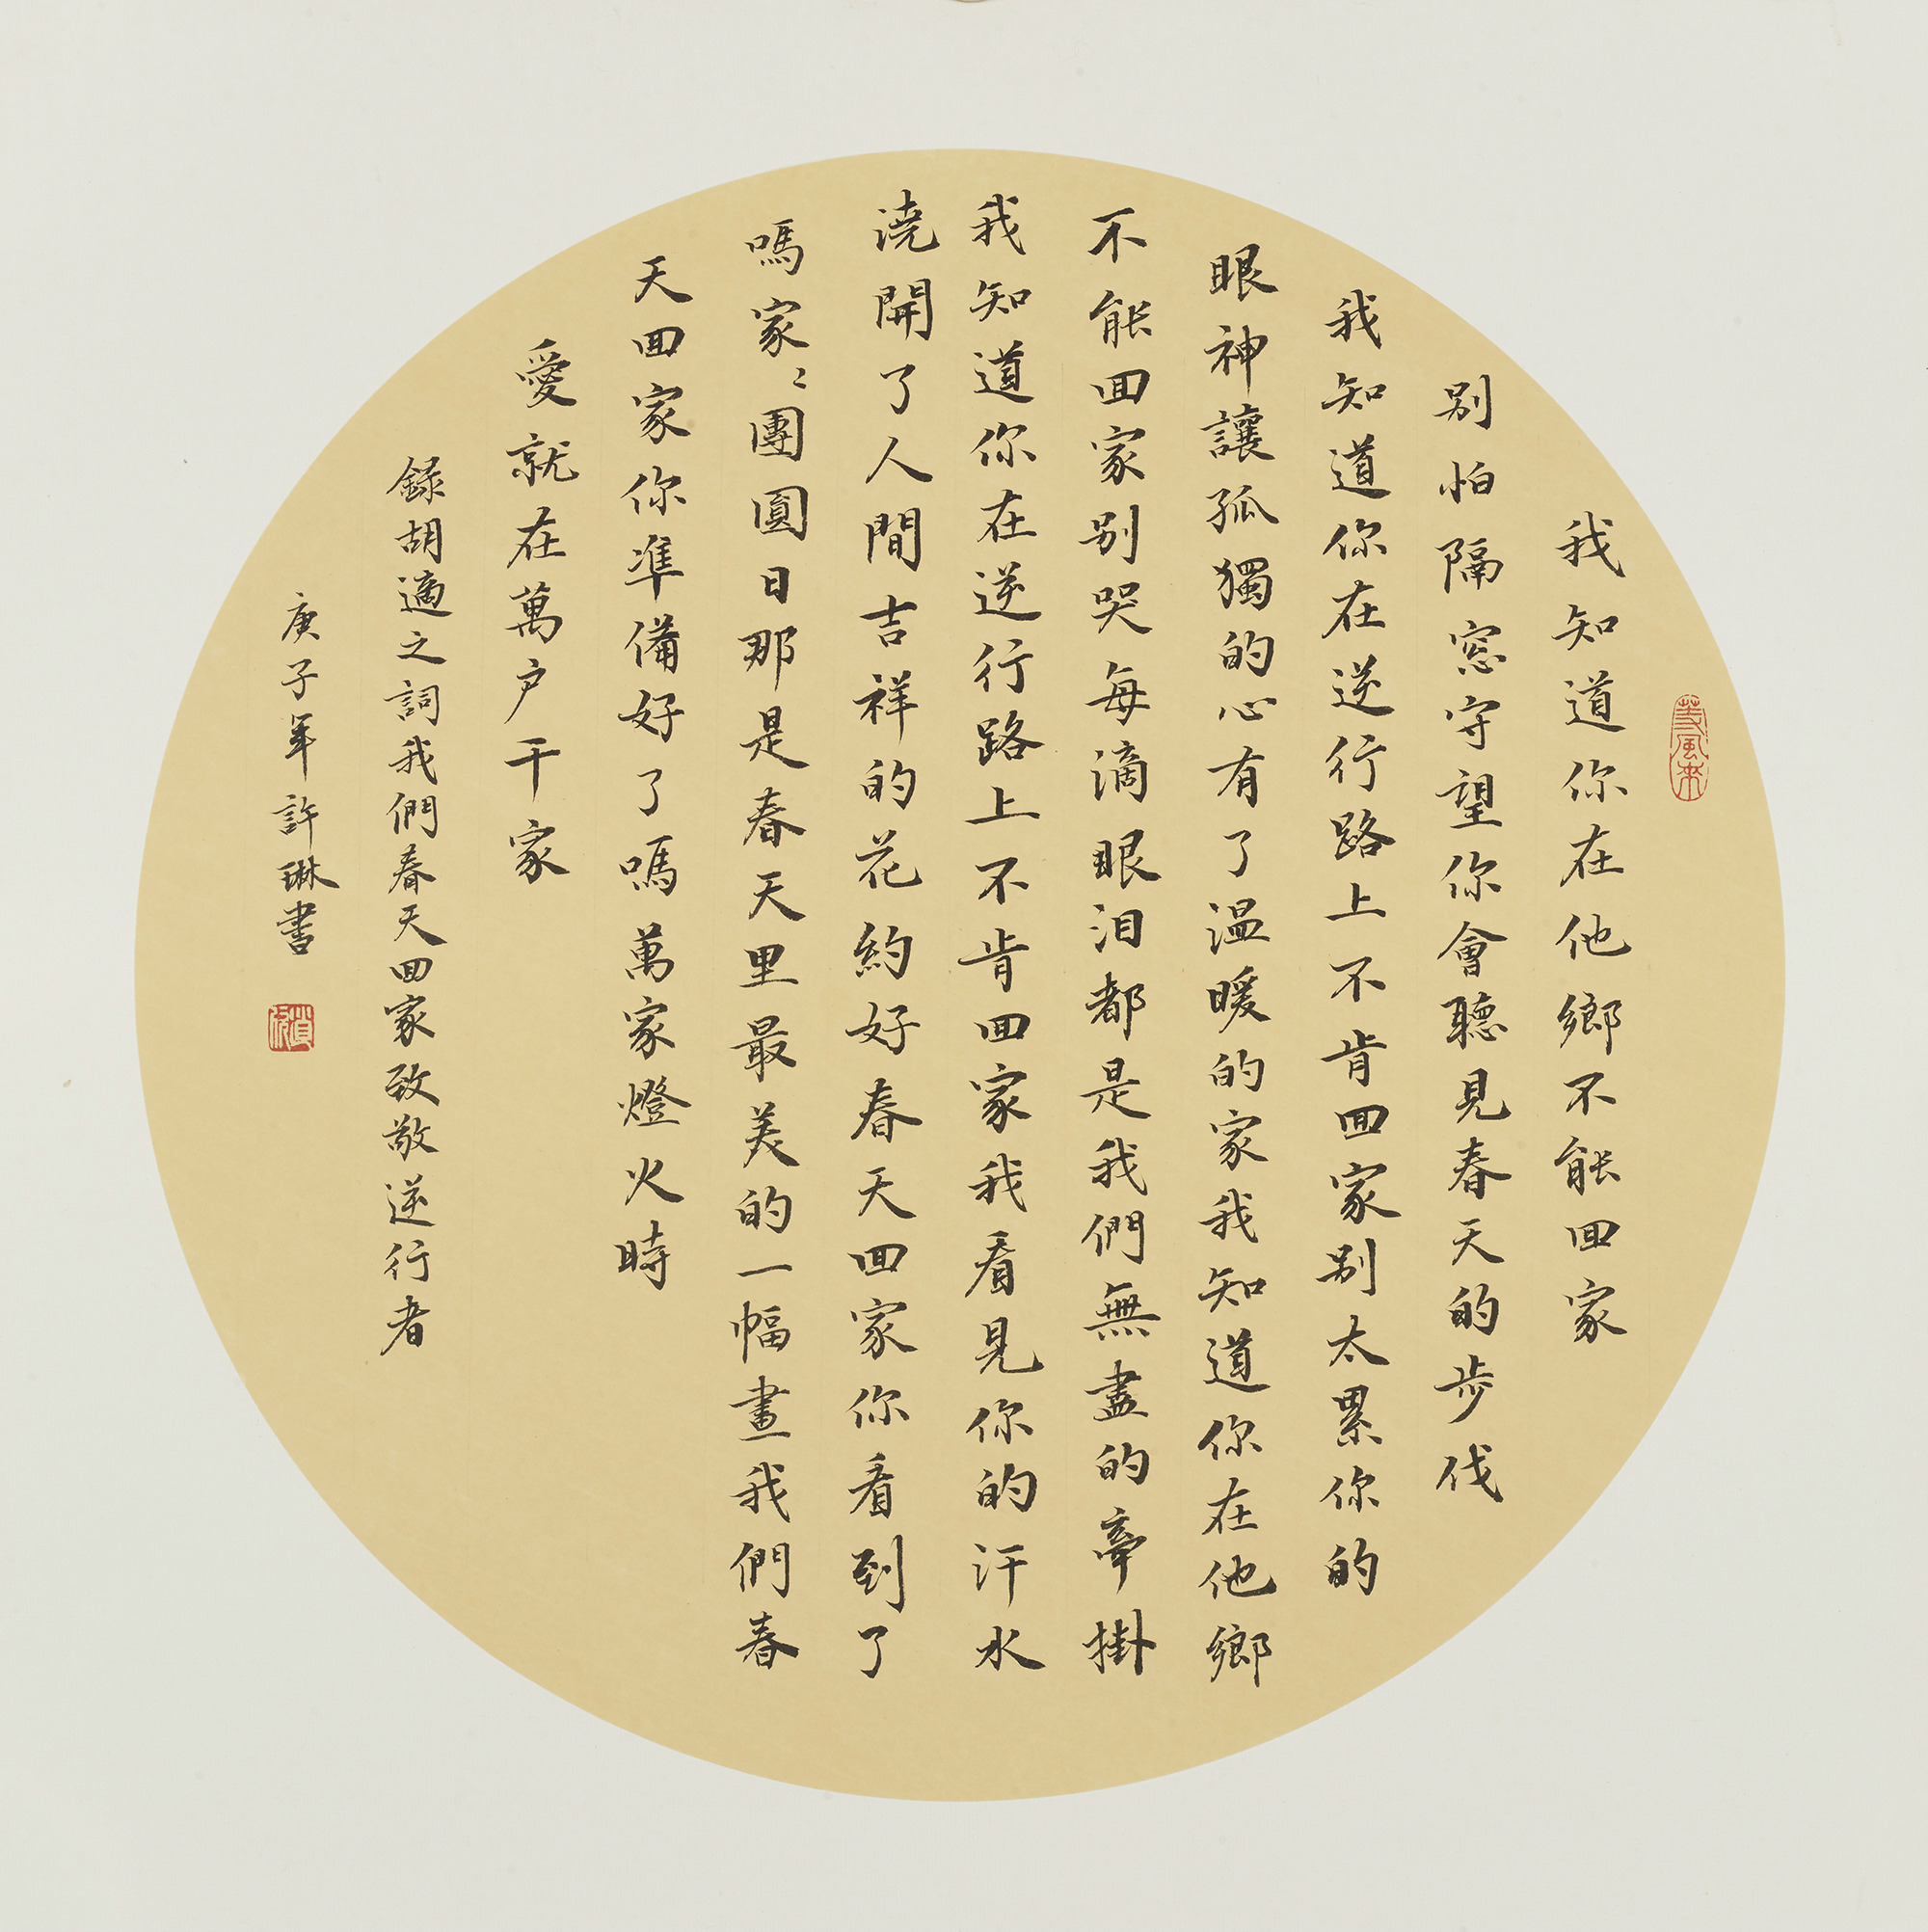 我知道你在他鄉不能回家
别怕隔窓守望你會聽見春天的步伐
我知道你在逆行路上不肯回家别太累你的
眼神讓孤獨的心有了温暖的家我知道你在他鄉
不能回家别哭每滴眼泪都是我們無盡的牽掛
我知道你在逆行路上不肯回家我看見你的汗水
澆開了人間吉祥的花約好春天回家你看到了
嗎家〻團圓日那是春天里最美的一幅畫我們春
天回家你準備好了嗎萬家燈火時
愛就在萬户千家
錄胡適之詞我們春天回家致敬逆行者
庚子年許琳書